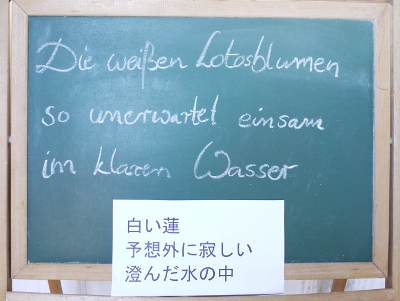 Die weißen Lotosblumen
so unerwartet einsam
im klaren Wasser
白い蓮
予想外に寂しい
澄んだ水の中